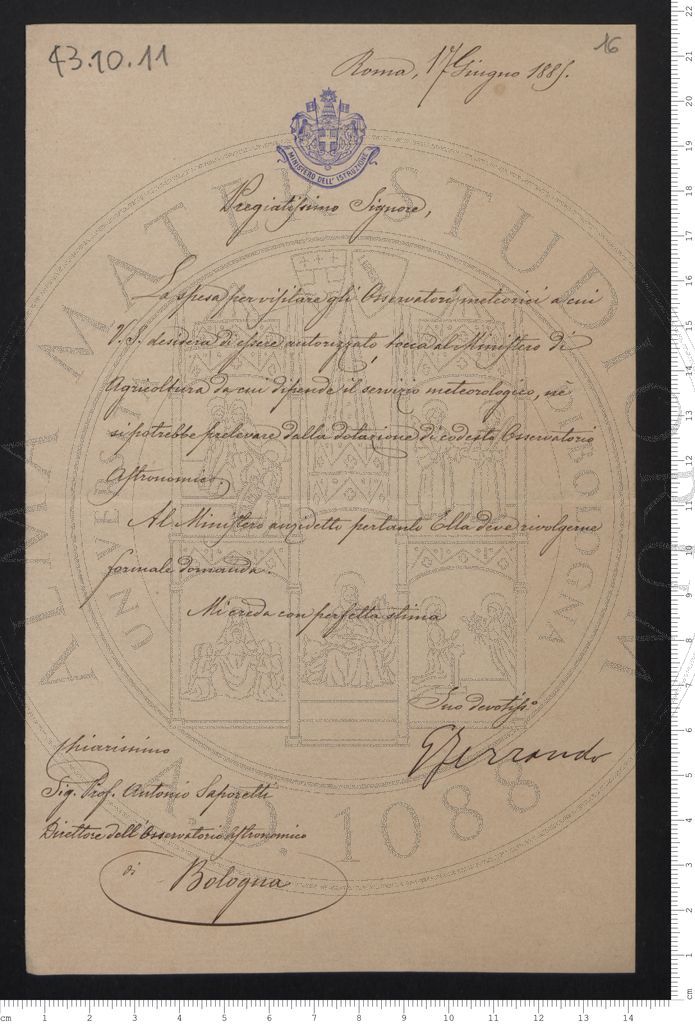 43.10.11
16
Roma, 17 Giugno 1885.
MINISTERO DELL'ISTRUZIONE
Pregiatissimo Signore,
La spesa per visitare gli Osservatorî meteorici a cui
V. S. desidera di essere autorizzato, tocca al Ministero di
Agricoltura da cui dipende il servizio meteorologico, nè
si potrebbe prelevare dalla dotazione di codesto Osservatorio
Astronomico.
Al Ministero anzidetto pertanto Ella deve rivolgerne
formale domanda.
Mi creda con perfetta stima
Suo devotisso
GFerrando
Chiarissimo
Sig. Prof. Antonio Saporetti
Direttore dell'Osservatorio Astronomico
di Bologna
ALMA MATER STUDIORUM
UNIVERSITÀ DI BOLOGNA
A.D. 1088